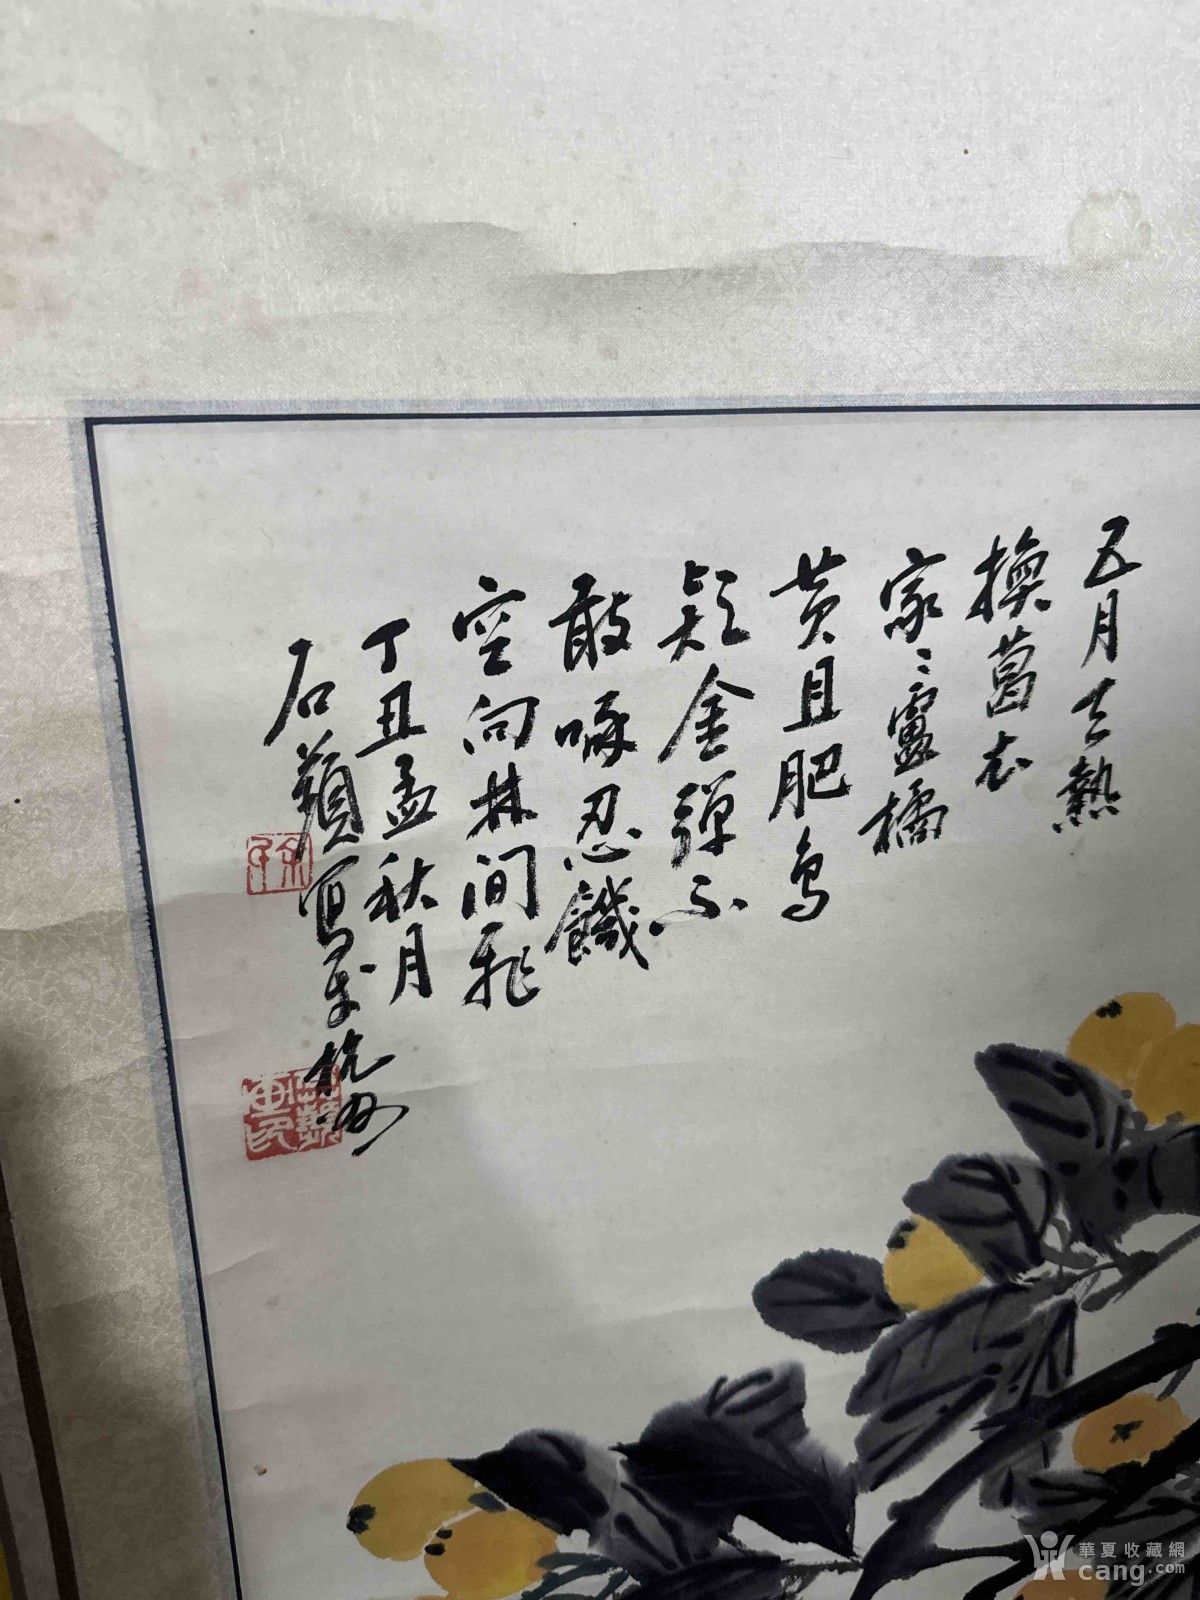 五月天熱
換葛衣
家〻盧橘
黄且肥鳥
疑金彈不
敢啄忍饑
空向林间飛
丁丑孟秋月
石蘋寫於杭州
華夏收藏網
cang.com